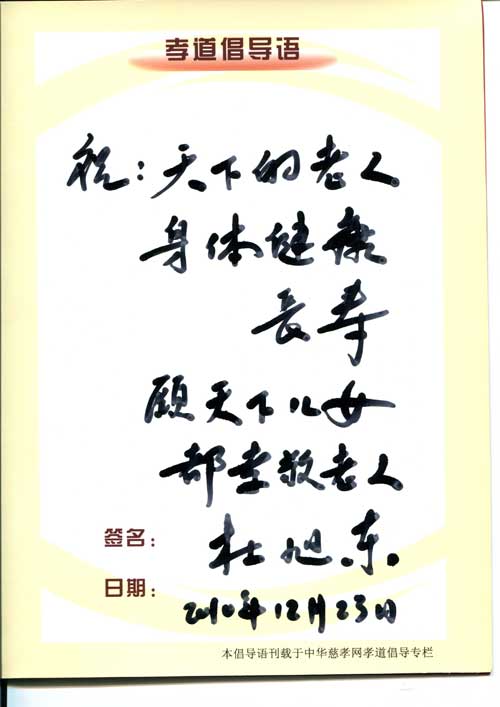 孝道倡导语
祝:天下的老人
身体健康
長寿
愿天下儿女
都孝敬老人
签名: 杜旭东
日期: 2010年12月23日
本倡导语刊载于中华慈孝网孝道倡导专栏